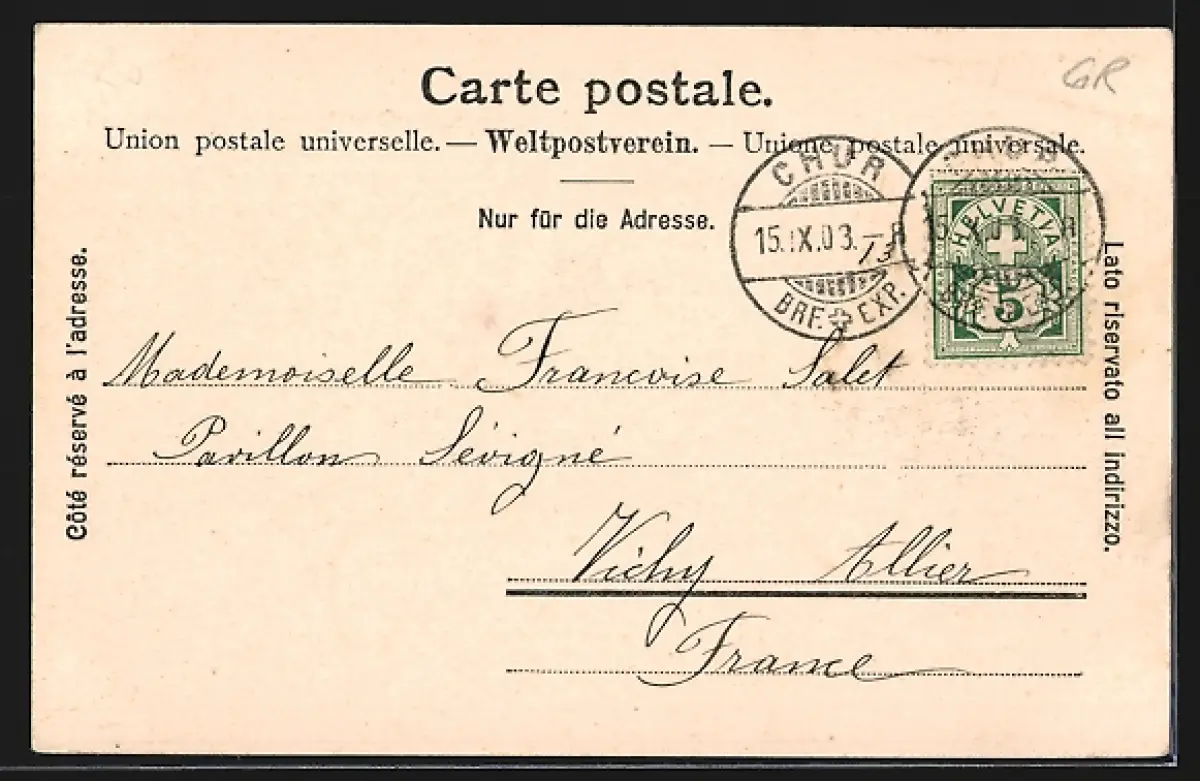 GR
Carte postale.
Union postale universelle. — Weltpostverein. — Unione postale universale.
Nur für die Adresse.
Côté réservé à l'adresse.
CHUR
15.IX.03.–
13
BRF. EXP.
HELVETIA
5
Lato riservato all indirizzo.
Mademoiselle Francoise Salet
Pavillon Sévigné
Vichy Allier
France